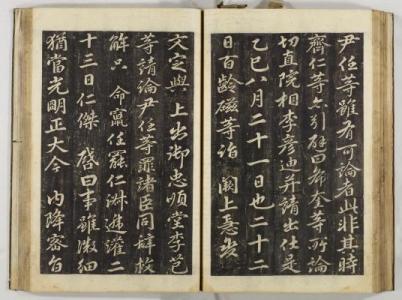 尹任等雖有可論者此非其時
齊仁等亦引辭曰鄭奎等所論
切直院相李彦迪幷請出仕是
乙巳八月二十一日也二十二
日百齡磁等詣 闕上意步
文定與 上出御忠順堂李芑
等請論尹任等罪諸臣同辭救
解只 命竄任罷仁淑遞灌二
十三日仁傑 啓曰事雖微細
猶當光明正大今 內降密旨